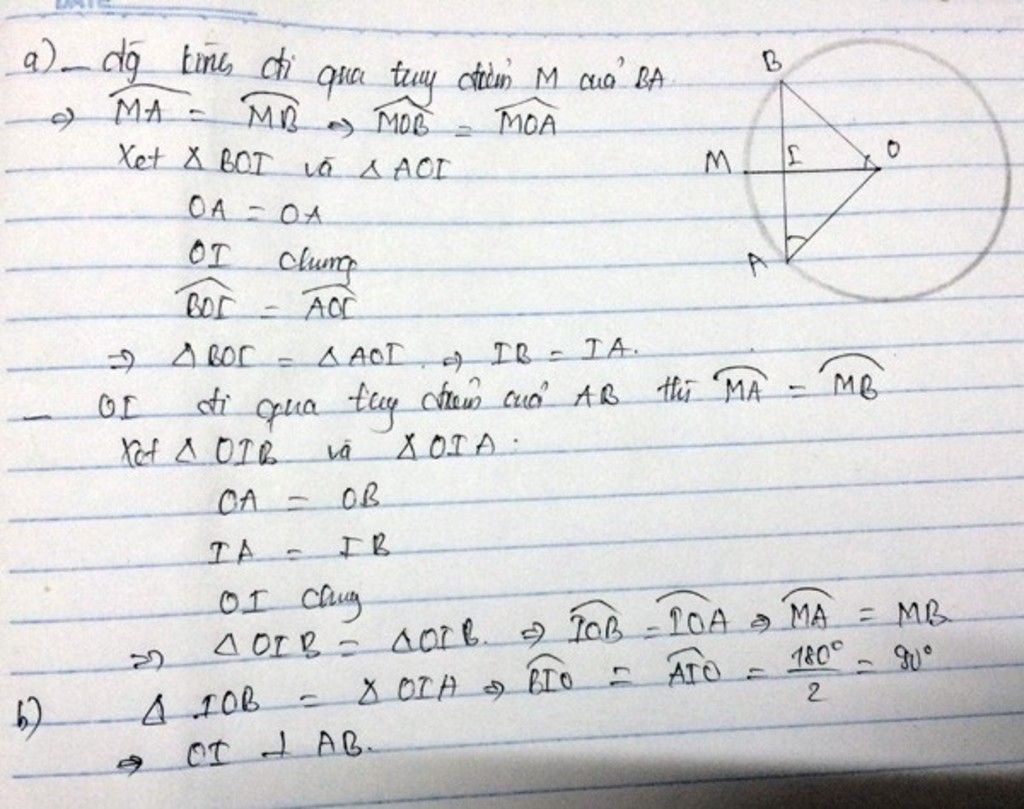 DATE
a) - đg kính đi qua tuy điểm M của BA
⇒ MA = MB ⇒ MOB = MOA
Xet Δ BOI và Δ AOI
OA = OA
OI chung
BOI = AOI
⇒ Δ BOI = Δ AOI. ⇒ IB = IA.
- OI đi qua tuy điểm của AB thì MA = MB
Xet Δ OIB và Δ OIA :
OA = OB
IA = IB
OI chug
⇒ Δ OIB = Δ OIB. ⇒ IOB = IOA ⇒ MA = MB
b) Δ IOB = Δ OIA ⇒ BIO = AIO = 180°/2 = 90°
⇒ OI ⊥ AB.
B
M
I
O
A